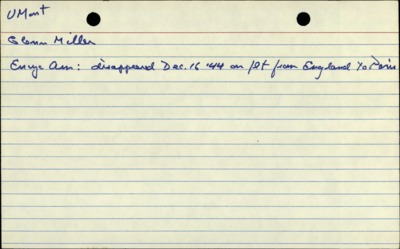 UMont
Glenn Miller
Encyc Am: disappeared Dec. 16 '44 on flt from England to Paris